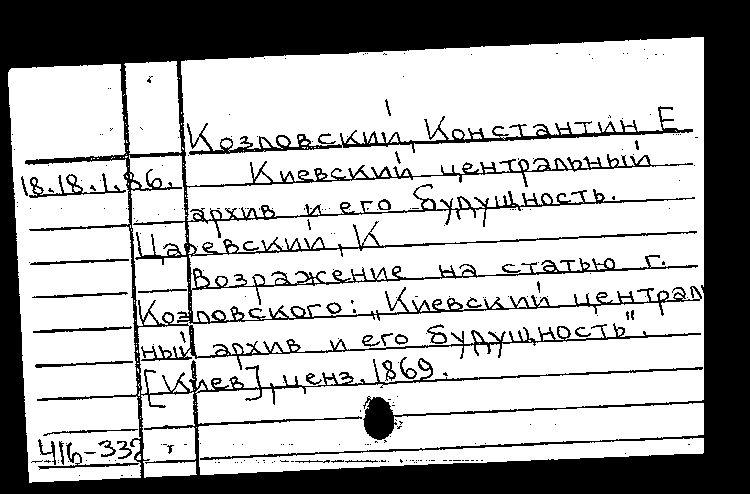 Козловский, Константин Е
18.18.1.86. Киевский центральный
архив и его будущность.
Царевский, К
Возражение на статью г.
Козловского: „Киевский централ
ный архив и его будущность".
[Киев], ценз. 1869.
416-332